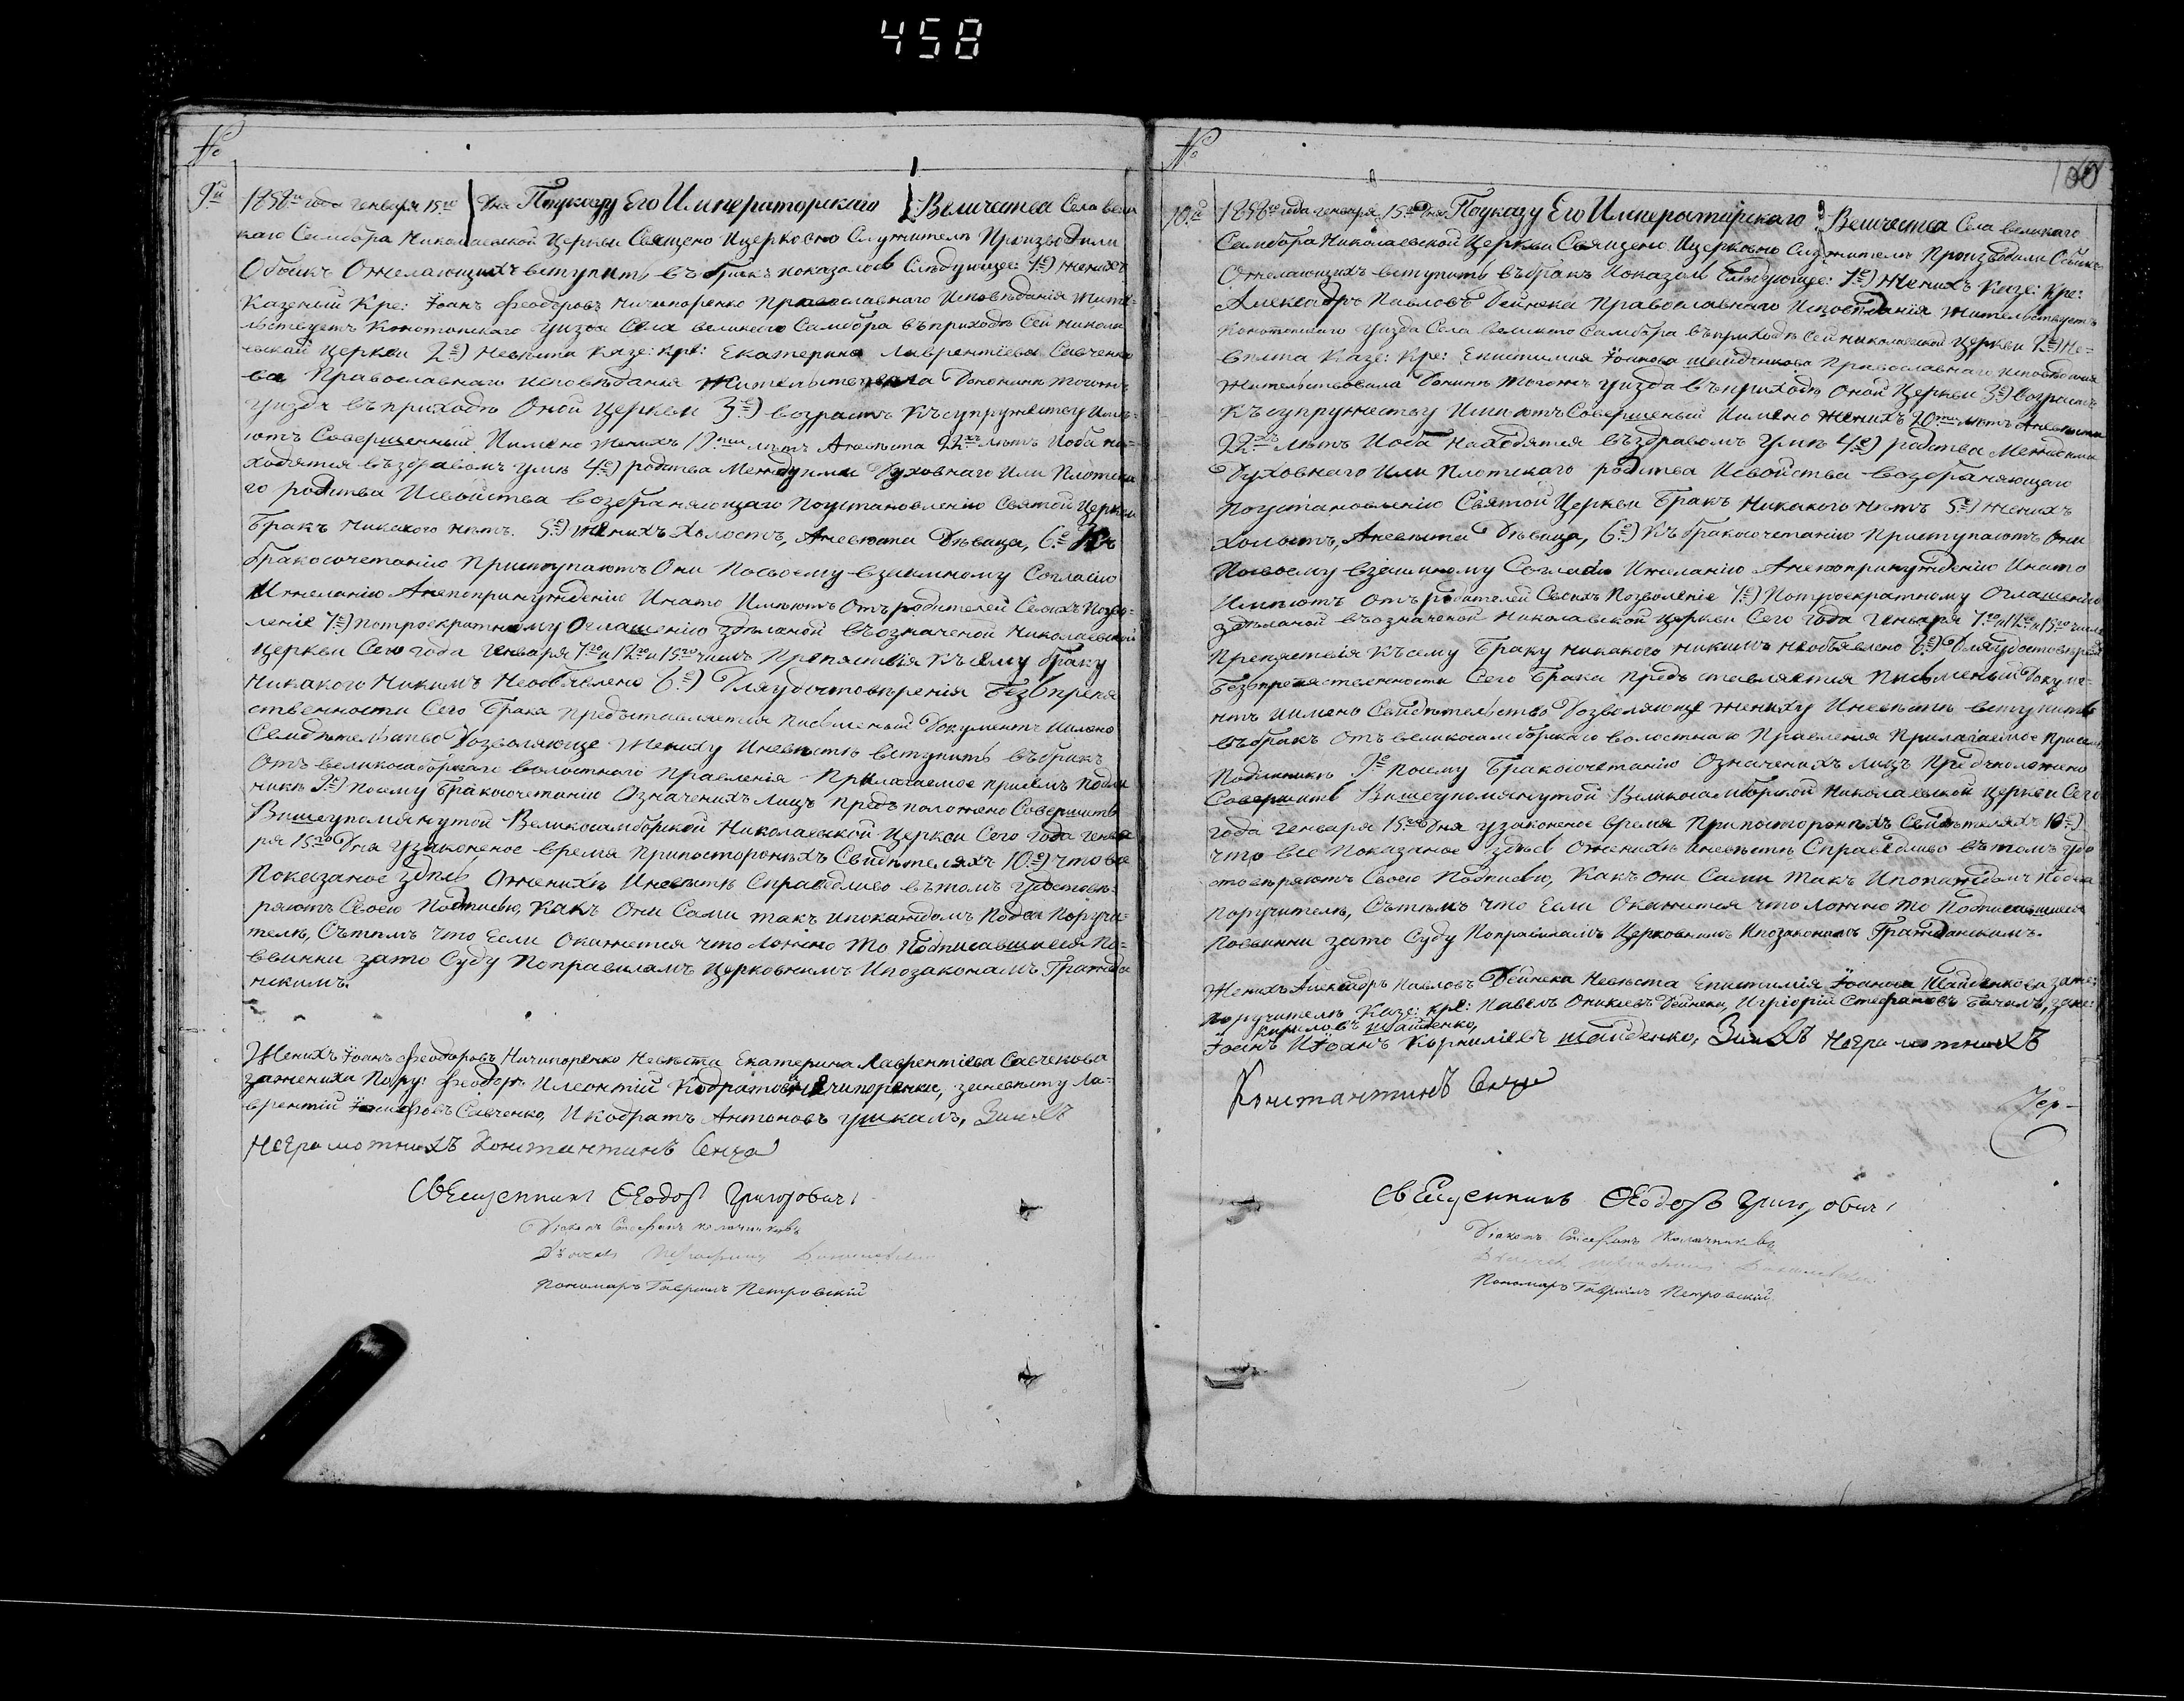 458
№
9й 1858го года генваря 15го Дня Поуказу Его Императорскаго Величества Села вели
каго Самбора Николаевской Церкви Священо Ицерковно Служителѣ Произво дили
Обыскъ Ожелающихъ вступить въ бракъ показалось Слѣдующее: 1е) женихъ
Казений Кре: Іоанъ Феодоровъ Ничипоренко Православнаго Исповѣданія жите-
льствуетъ Конотопскаго Уизда Села великаго Самбора въприходѣ Сей Никола
евской Церкви 2е) Невѣста Казе: Кре: Екатерина Лаврентіева Савченко
ва Православнаго исповѣданія Жительствовала Донынѣ тогожъ
Уизда въприходѣ Оной Церкви 3е) возрастъ Къ супружеству Имѣ-
ютъ Совершенный Имено женихъ лѣтъ Аневѣста 22хъ лѣтъ Иоба на-
ходятся въздравомъ умѣ 4е) родства Междуими Духовнаго Или Плотска
го родства Исвойства возбраняющаго Поустановленію Святой Церкви
Бракъ Никакого нѣтъ. 5е) Женихъ Холостъ, Аневѣста Дѣвица, 6е Къ
бракосочетанію Приступаютъ Они Посвоему взаимному Согласію
Ижеланію Анепопринужденію Инато Имѣютъ Отъродителей Своихъ Позво-
леніе 7е) Потроекратному Оглашенію здѣланой въозначеной Николаевской
Церкви Сего года Генваря 7го и 12го и 15го чиселъ Препяствія Къ сему браку
Никакого Никимъ Необявлено 8е) Для удостовѣренія безъпрепя
ственности Сего Брака Предъставляется Письменый Документъ Имено
Свидѣтельство Дозволяюще Жениху Иневѣстѣ вступить въбракъ
Отъ великосаборкаго волостного Правленія Прилагаемое присемъ Подли
никѣ 9е) Посему Бракосочетанію Означенихъ Лицъ Предъположено Совершить
Вишеупомянутой Великосамборской Николаевской Церкви Сего года Генва
ря 15го Дня узаконеное время Припостороныхъ Свидѣтеляхъ 10е) что все
Показаное здѣсь Оженихѣ Иневѣстѣ Справедливо вътомъ Удостовѣ-
ряютъ Своею Подписью, Какъ Они Сами такъ Ипокаждомъ Подва Поручи-
телѣ, Сътѣмъ что Если Окажется что ложно то Подписавшиеся По-
винни зато Суду Поправиламъ Церковнимъ Ипозаконамъ Гражда
нскимъ.
Женихъ Іоанъ Феодоровъ Ничипоренко Невѣста Екатерина Лаврентіева Савченкова
зажениха Пору: Феодоръ Илеонтій Кодратови Ничипоренки, заневѣсту Ла-
врентій Іосифовъ Савченко, И Кодратъ Антоновъ Ушкалъ, Зихъ
Неграмотнихъ Константинъ Сенча
Священникъ Ѳеодоръ Григоровичъ
Діаконъ Стефанъ
Пономарь Гавриилъ Петровскій
№
100
10й 1858го года генваря 15го Дня Поуказу Его Императорскаго Величества Села великаго
Самбора Николаевской Церкви Священо Ицерковно Служителѣ Произъводили Обыскъ
Ожелающихъ вступить въбракъ Показалось Слѣдующее: 1е) Женихъ Казе: Кре:
Александръ Павловъ Дейнека Православнаго Исповѣданія Жительствуетъ
Конотопскаго Уизда Села Великаго Самбора въприходѣ Сей Николаевской Церкви 2е) Не-
вѣста Казе: Кре: Епистимія Іоанова Шайденкова Православнаго исповѣданія
Жительствовала Донынѣ тогожъ Уизда въприходѣ Оной Церкви 3е) возрастъ
Къ супружеству Имѣютъ Совершеный Имено женихъ 20ти лѣтъ Аневѣста
22хъ Лѣтъ Иоба находятся въздравомъ умѣ 4е) родства Междуими
Духовнаго Или Плотскаго родства Исвойства возбраняющаго
Поустановленію Святой Церкви Бракъ Никакого нѣтъ 5е) Женихъ
холостъ, Аневѣста Дѣвица, 6е) Къ бракосочетанію Приступаютъ Они
Посвоему взаимному Согласію Ижеланію Анепопринужденію Инато
Имѣютъ Отъ родителей Своихъ Позволеніе 7е) Потроекратному Оглашенію
здѣланой въозначеной Николаевской Церкви Сего года Генваря 7го и 12го и 15го чиселъ
Препяствія Къ сему Браку никакого никимъ необъявлено 8е) Дляудостовѣренія
безпрепяственности Сего Брака Предъ ставляется Письменый Докуме-
нтъ Имено Свидѣтельство Дозволяюще Жениху Иневѣстѣ вступить
въбракъ Отъ великосамборкаго волостнаго Правленія Прилагаемое Присемъ
Подлиникѣ 9е Посему Бракосочетанію Означенихъ лицъ Предположено
Совершить Вишеупомянутой Великосамборской Николаевской Церкви Сего
года Генваря 15го Дня узаконеное время Припостороныхъ Свидѣтеляхъ 10е)
что все Показаное здѣсь Оженихѣ Иневѣстѣ Справедливо вътомъ удо
стовѣряютъ Своею Подписью, Какъ Они Сами такъ Ипокаждомъ Подва
Поручителѣ, Сътѣмъ что Если Окажется что ложно то Подписавшиеся
Повинни зато Суду Поправиламъ Церковнимъ Ипозаконамъ Гражданскимъ.
Женихъ Александръ Павловъ Дейнека Невѣста Епистимія Іоанова Шайденкова заже:
поручителѣ Казе: Кре: Павелъ Оникиевъ Дейнека, Игригорій Стефановъ Бачалъ, зане:
Кириловъ Шайденко,
Іоанъ И Іоанъ Корниліевъ Шайденко, Зихъ Неграмотнихъ
Константинъ Сенча
Чер-
Священникъ Ѳеодоръ Григоровичъ
Діаконъ Стефанъ
Пономарь Гавриилъ Петровскій